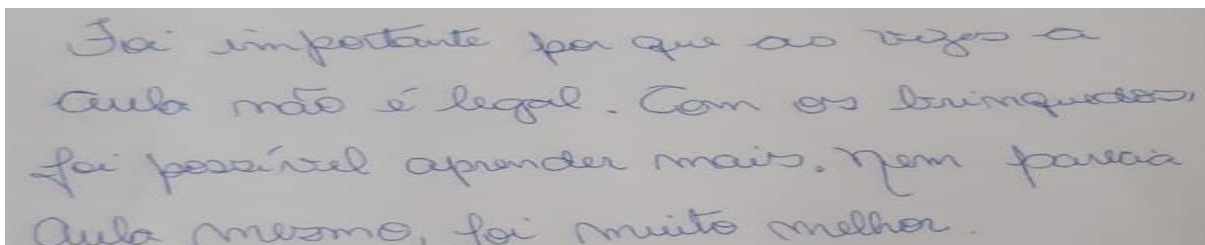 Foi importante por que as vezes a
aula não é legal. Com os brinquedos,
foi possível aprender mais. Nem parecia
aula mesmo, foi muito melhor.